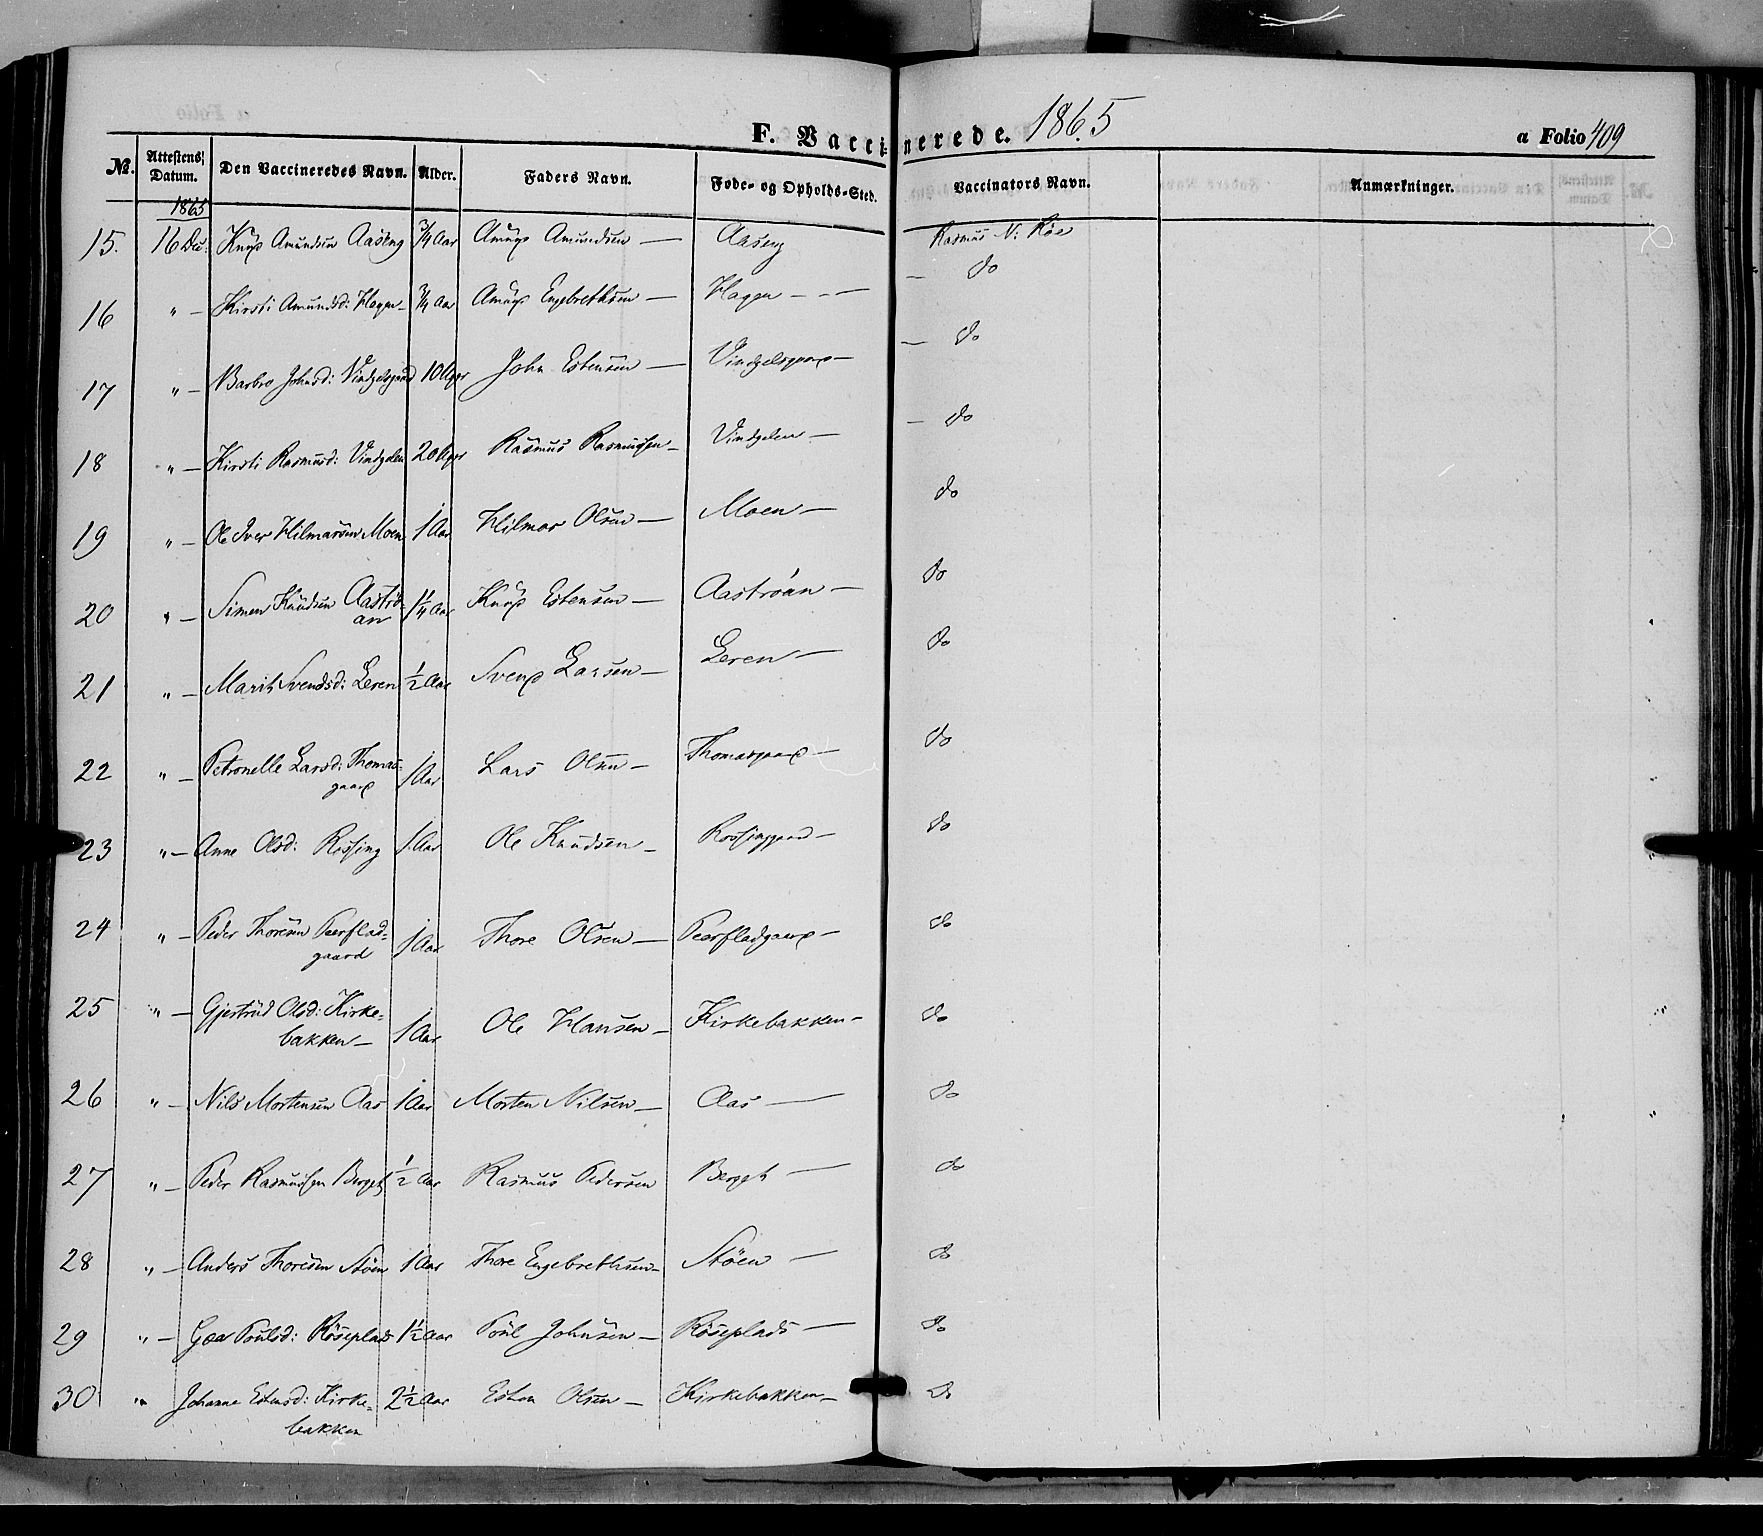 F. Vaccinerede. 1865
a Folio 409
No. Attestens Datum. Den Vaccineredes Navn. Alder. Faders Navn. Føde- og Opholds-Sted. Vaccinators Navn. Anmærkninger.
1865
15. 16 Dec: Knud Amundsen Aaseng 3/4 Aar Amund Amundsen — Aaseng Rasmus N: Röe
16 " — Kirsti Amundsd: Hagen — 3/4 Aar Amund Engebrethsen — Hagen — — — do
17 " — Barbro Johnsd: Vindgelsgaard 10 Uger John Estensen — Vindgelsgaard — — do
18 " — Kirsti Rasmusd: Vindgelen 20 Uger Rasmus Rasmussen — Vindgelen — — do
19 " — Ole Iver Hilmarsen Moen 1 Aar Hilmar Olsen — Moen — do
20 " — Simen Knudsen Aaströ-
an 1 1/4 Aar Knud Estensen — Aaströan — do
21 " — Marit Svendsd: Leren 1/2 Aar Svend Larsen — Leren — do
22 " — Petronelle Larsd: Thomas-
gaard 1 Aar Lars Olsen — Thomasgaard — do
23 " — Anne Olsd: Røsjing 1 Aar Ole Knudsen — do
24 " — Peder Thoresen Peerflad-
gaard 1 Aar Thore Olsen — Peerfladgaard — do
25 " — Gjertrud Olsd: Kirke-
bakken — 1 Aar Ole Hansen — Kirkebakken — do
26 " — Nils Mortensen Aas 1 Aar Morten Nilsen — Aas — do
27 " — Peder Rasmussen Berget 1/2 Aar Rasmus Pedersen Berget — do
28 " — Anders Thoresen Støen 1 Aar Thore Engebrethsen — Støen — do
29 " — Goa Poulsd: Röseplads 1 1/2 Aar Poul Johnsen — Röseplads — do
30 " Johanne Estensd: Kirke-
bakken 2 1/2 Aar Esten Olsen — Kirkebakken — do